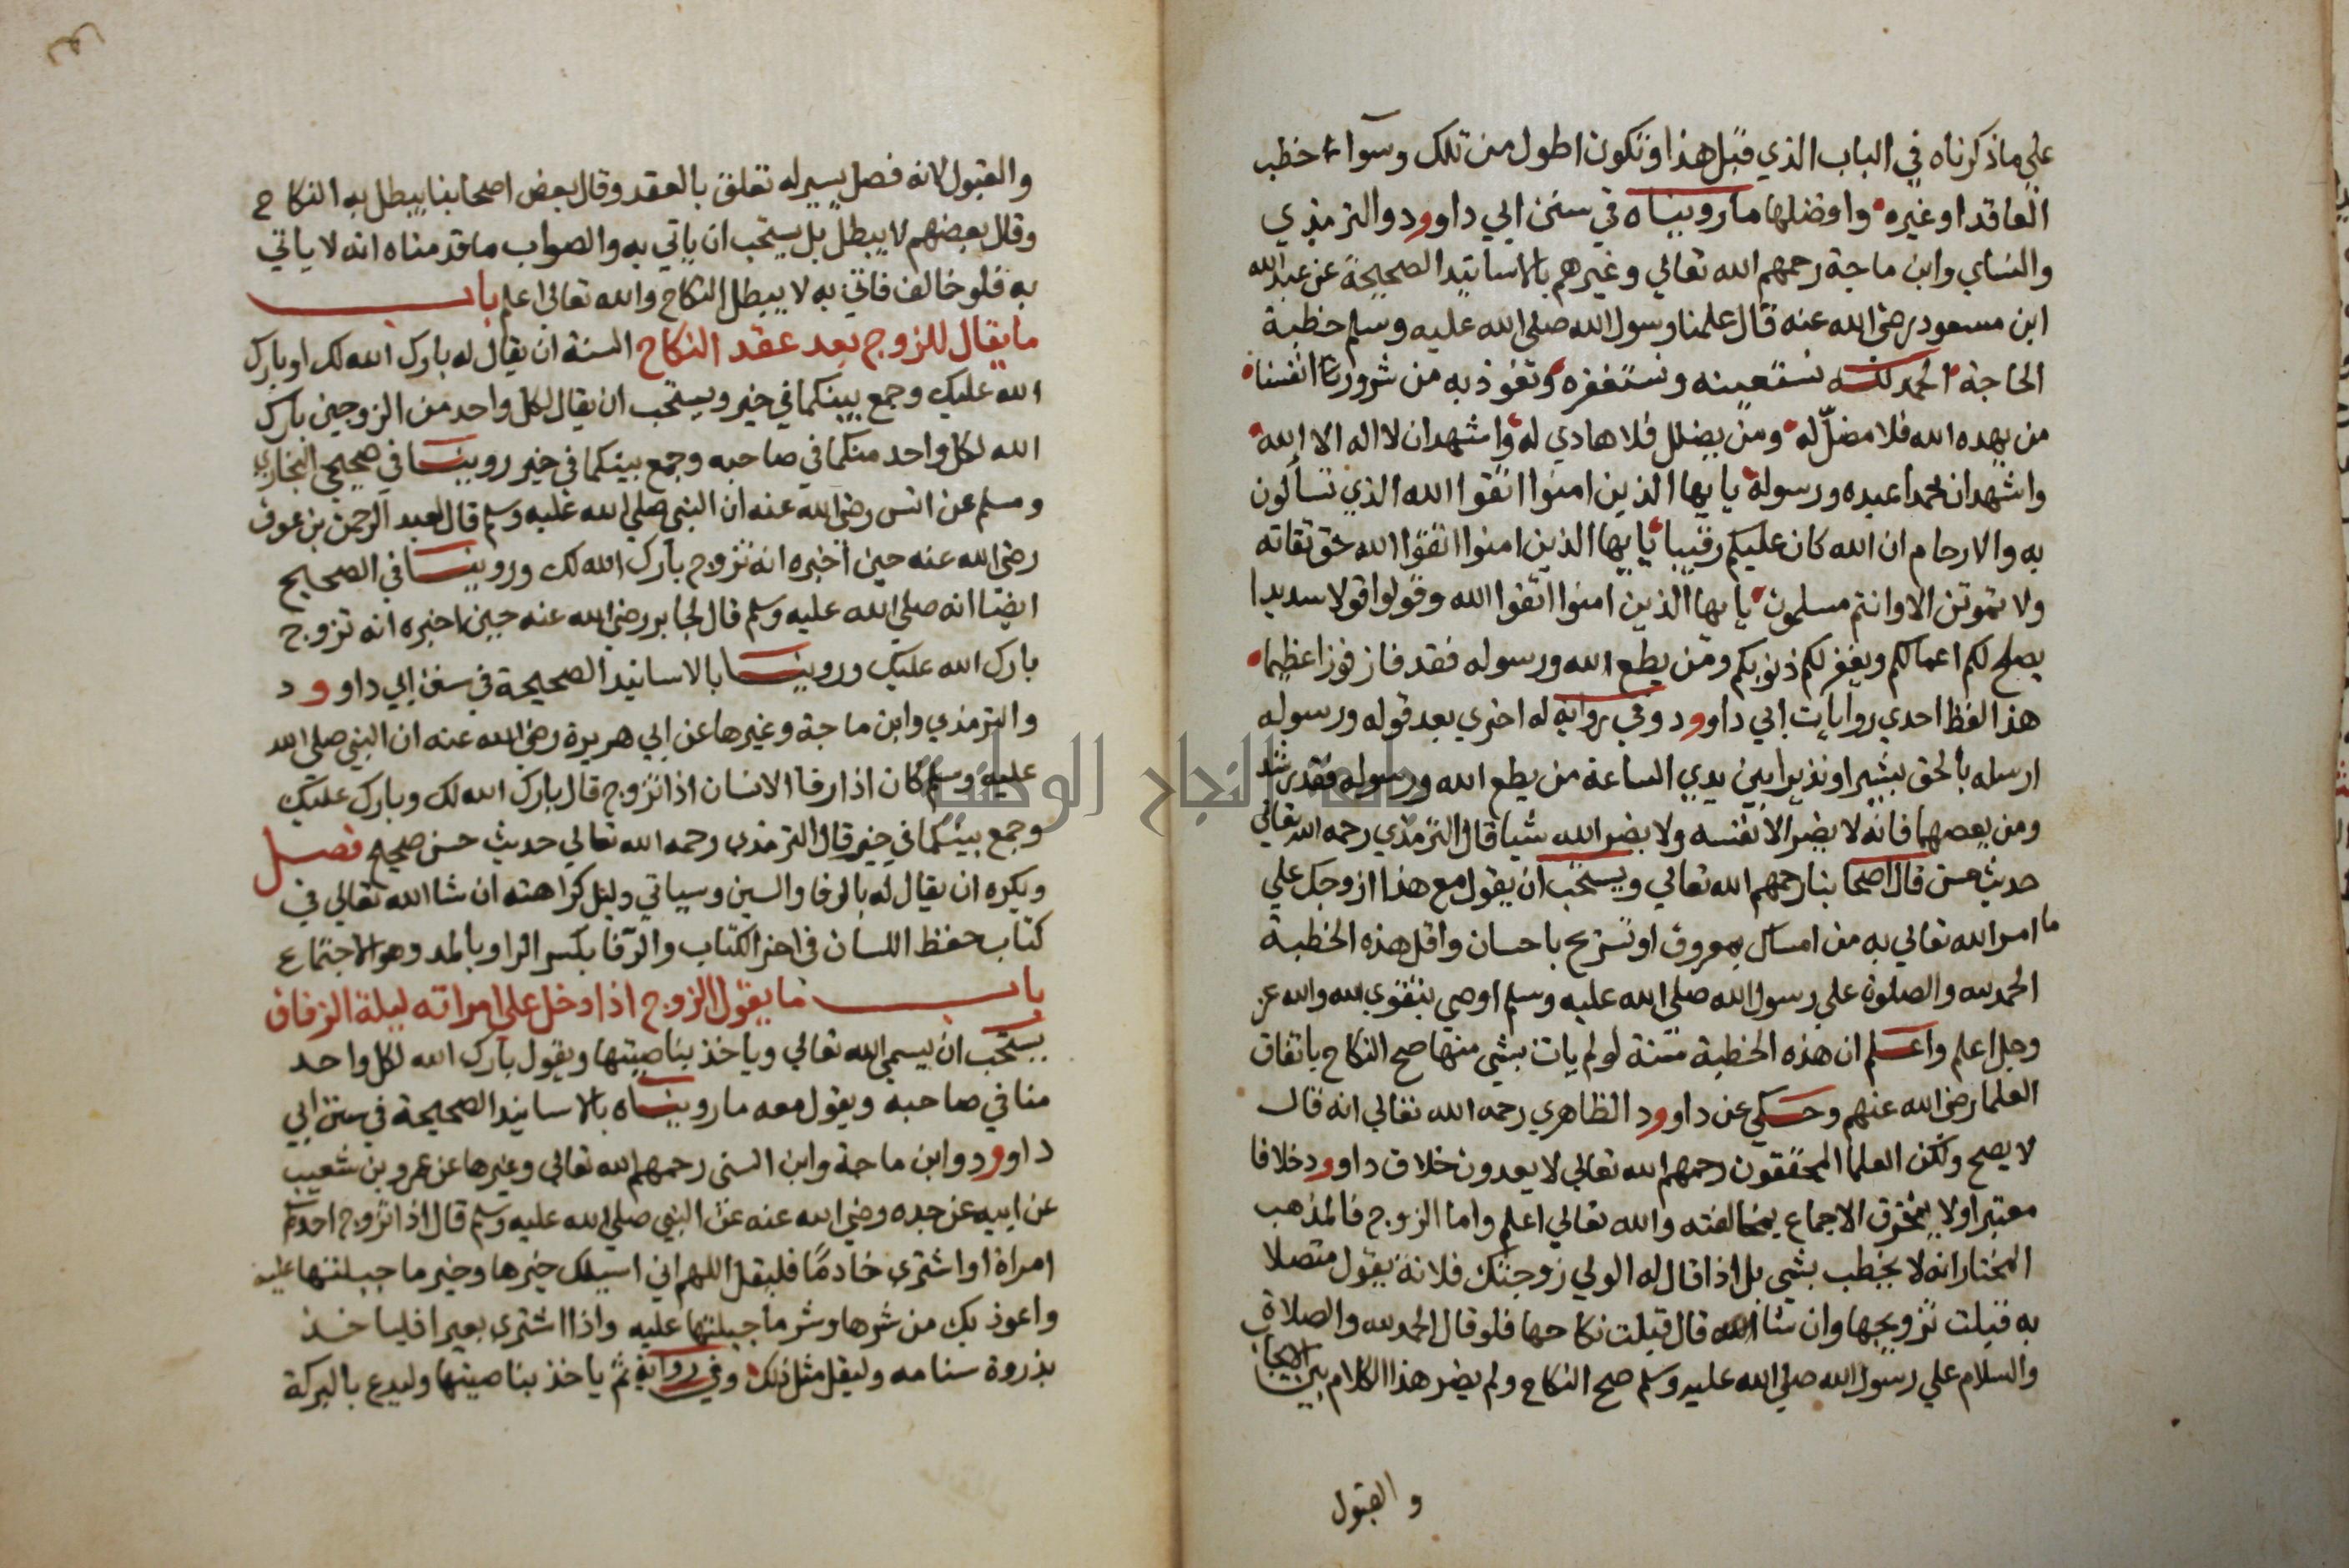 علي ماذكرناه في الباب الذي قبل هذا وتكون اطول من تلك وسوآء خطب
العاقد او غيره وافضلها مارويناه في سنن ابي داوود والترمذي
والنساي وابن ماجة رحمهم الله تعالي وغيرهم بالاسانيد الصحيحة عن عبد الله
ابن مسعود رضي الله عنه قال علمنا رسول الله صلي الله عليه وسلم خطبة
الحاجة الحمد لله نستعينه ونستغفره ونعوذ به من شرور انفسنا
من يهده الله فلا مضلّ له ومن يضلل فلا هادي له واشهد ان لا اله الا الله
واشهد ان محمدا عبده ورسوله يا يها الذين امنوا اتقوا الله الذي تسألون
به والارحام ان الله كان عليكم رقيبا يا يها الذين امنوا اتقوا الله حق تقاته
ولا تموتن الا وانتم مسلمون يا يها الذين امنوا اتقوا الله وقولوا قولا سديدا
يصلح لكم اعمالكم ويغفر لكم ذنوبكم ومن يطع الله ورسوله فقد فاز فوزا عظيما
هذا لفظ احدي روايات ابي داوود وفي رواية له اخري بعد قوله ورسوله
ارسله بالحق بشيرا ونذيرا بين يدي الساعة من يطع الله ورسوله فقد رشد
ومن يعصهما فانه لا يضر الا نفسه ولا يضر الله شيا قال الترمذي رحمه الله تعالي
حديث حسن قال اصحابنا رحمهم الله تعالي ويستحب ان يقول مع هذا ازوجك علي
ما امر الله تعالي به من امساك بمعروف او تسريح باحسان واقل هذه الخطبة
الحمد لله والصلوة علي رسول الله صلي الله عليه وسلم اوصي بتقوي الله والله عز
وجل اعلم واعلم ان هذه الخطبة سنة لو لم يات بشي منها صح النكاح باتفاق
العلما رضي الله عنهم وحكي عن داوود الظاهري رحمه الله تعالي انه قال
لا يصح ولكن العلما المحققون رحمهم الله تعالي لا يعدون خلاف داوود خلافا
معتبرا ولا ينخرق الاجماع بمخالفته والله تعالي اعلم واما الزوج فالمذهب
المختار انه لا يخطب بشي بل اذا قال له الولي زوجتك فلانة يقول متصلا
به قبلت تزويجها وان شا قال قبلت نكاحها فلو قال الحمد لله والصلاة
والسلام علي رسول الله صلي الله عليه وسلم صح النكاح ولم يضر هذا الكلام بين الايجاب
والقبول
والقبول لانه فصل يسير له تعلق بالعقد وقال بعض اصحابنا يبطل به النكاح
وقال بعضهم لا يبطل بل يستحب ان ياتي به والصواب ما قدمناه انه لا ياتي
به فلو خالف فاتي به لا يبطل النكاح والله تعالي اعلم باب
ما يقال للزوج بعد عقد النكاح السنة ان يقال له بارك الله لك او بارك
الله عليك وجمع بينكما في خير ويستحب ان يقال لكل واحد من الزوجين بارك
الله لكل واحد منكما في صاحبه وجمع بينكما في خير روينا في صحيح البخاري
ومسلم عن انس رضي الله عنه ان النبي صلي الله عليه وسلم قال لعبد الرحمن بن عوف
رضي الله عنه حين اخبره انه تزوج بارك الله لك وروينا في الصحيح
ايضا انه صلي الله عليه وسلم قال لجابر رضي الله عنه حين اخبره انه تزوج
بارك الله عليك وروينا بالاسانيد الصحيحة في سنن ابي داوود
والترمذي وابن ماجة وغيرها عن ابي هريرة رضي الله عنه ان النبي صلي الله
عليه وسلم كان اذا رفا الانسان اذا تزوج قال بارك الله لك وبارك عليك
وجمع بينكما في خير قال الترمذي رحمه الله تعالي حديث حسن صحيح فصل
ويكره ان يقال له بالرفا والبنين وسياتي دليل كراهته ان شا الله تعالي في
كتاب حفظ اللسان في اخر الكتاب والرّفا بكسر الرا وبالمد وهو الاجتماع
باب ما يقول الزوج اذا دخل علي امراته ليلة الزفاف
يستحب ان يسمي الله تعالي وياخذ بناصيتها ويقول بارك الله لكل واحد
منا في صاحبه ويقول معه ماروينا‌ه بالاسانيد الصحيحة في سنن ابي
داوود وابن ماجة وابن السني رحمهم الله تعالي وغيرها عن عمرو بن شعيب
عن ابيه عن جده رضي الله عنه عن النبي صلي الله عليه وسلم قال اذا تزوج احدكم
امراة او اشتري خادمًا فليقل اللهم اني اسيلك خيرها وخير ما جبلتها عليه
واعوذ بك من شرها وشر ما جبلتها عليه واذا اشتري بعيرا فلياخذ
بذروة سنامه وليقل مثل ذلك وفي رواية ثم ياخذ بناصيتها وليدع بالبركة
جامعة النجاح الوطنية